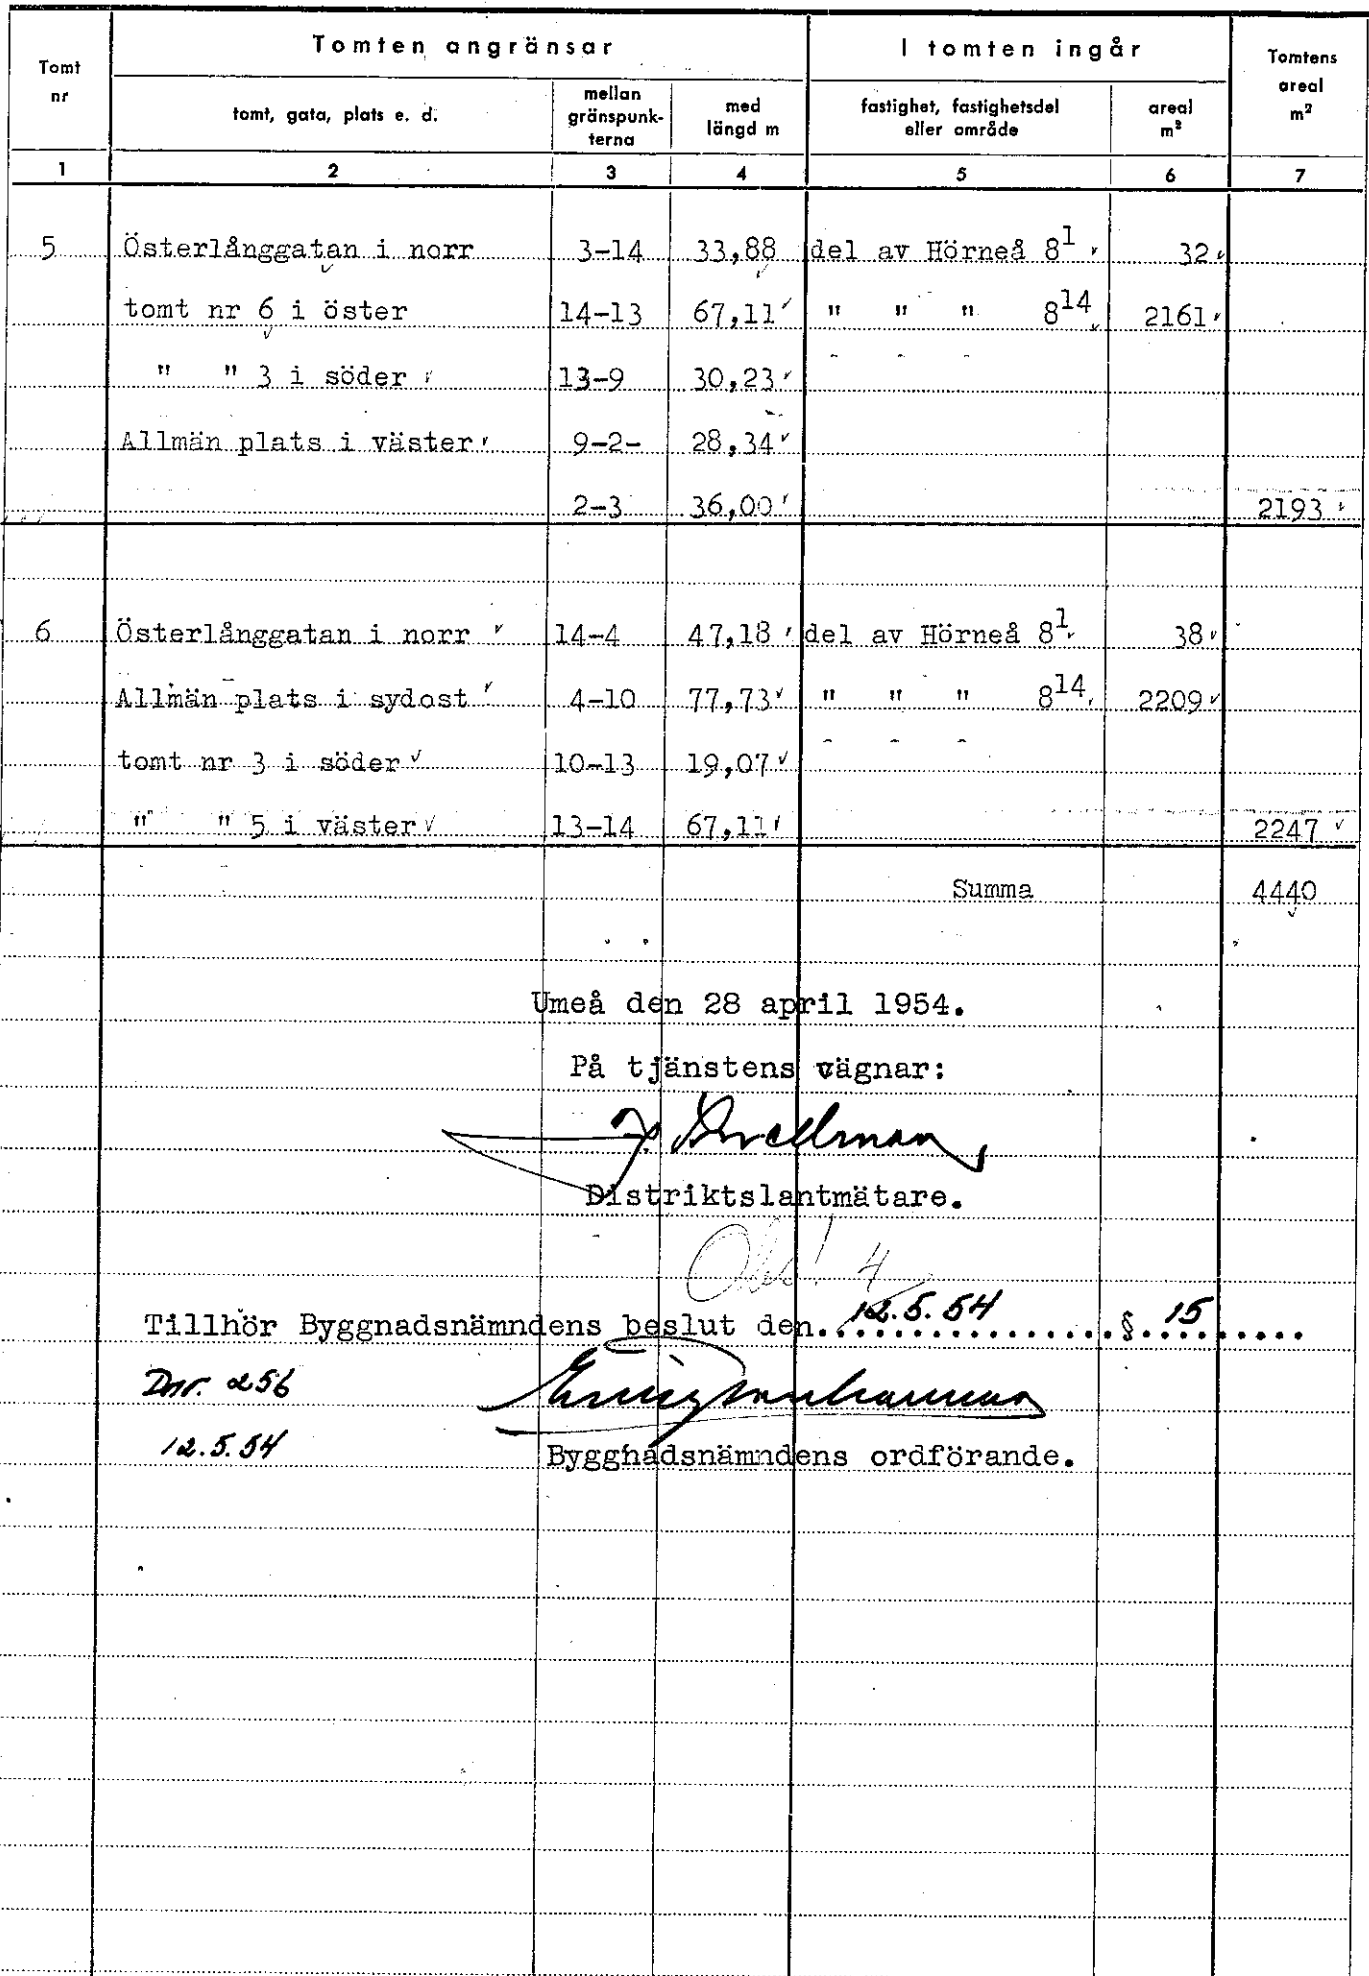 Tomt nr | Tomten angränsar | I tomten ingår | Tomtens areal m²
tomt, gata, plats e. d. | mellan gränspunkterna | med längd m | fastighet, fastighetsdel eller område | areal m²
1 | 2 | 3 | 4 | 5 | 6 | 7
5 Österlånggatan i norr 3-14 33,88 del av Hörneå 8¹ 32
tomt nr 6 i öster 14-13 67,11 " " " 8¹⁴ 2161
" " 3 i söder 13-9 30,23
Allmän plats i väster 9-2- 28,34
2-3 36,00 2193
6 Österlånggatan i norr 14-4 47,18 del av Hörneå 8¹ 38
Allmän plats i sydost 4-10 77,73 " " " 8¹⁴ 2209
tomt nr 3 i söder 10-13 19,07
" " 5 i väster 13-14 67,11 2247
Summa 4440
Umeå den 28 april 1954.
På tjänstens vägnar:
Distriktslantmätare.
Obs! 4
Tillhör Byggnadsnämndens beslut den 12.5.54 § 15
Dnr. 256
12.5.54
Byggnadsnämndens ordförande.